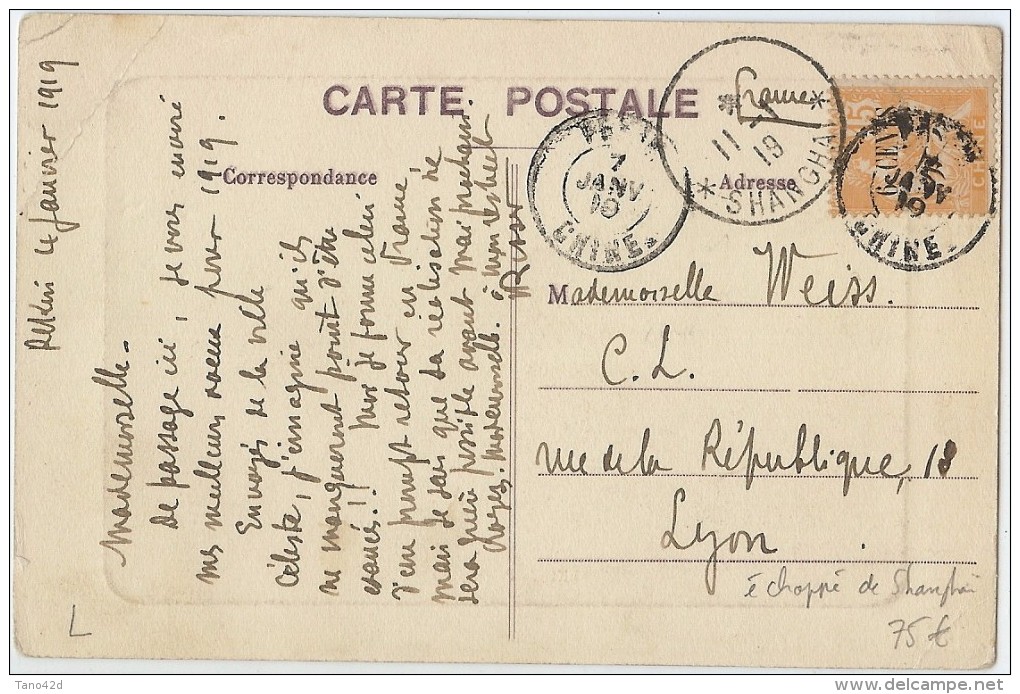 CARTE POSTALE
Correspondance
Adresse
Pékin ce janvier 1919
Mademoiselle.
De passage ici, je vous envoie
mes meilleurs vœux pour 1919.
Envoyés de la ville
Céleste, j'imagine qu'ils
ne manqueront point d'être
exaucés! Moi je forme celui
d'un prompt retour en France,
mais je sais que sa réalisation ne
sera guère possible avant mai prochain.
Mademoiselle, à mon
Mademoiselle Weiss.
C. L.
rue de la République, 18
Lyon
7
JANV
19
CHINE
France
11
19
SHANGHAI
15
CHINE
JANV
19
CHINE
échoppé de Shanghai
75 €
L
Tano42d
delcampe.net